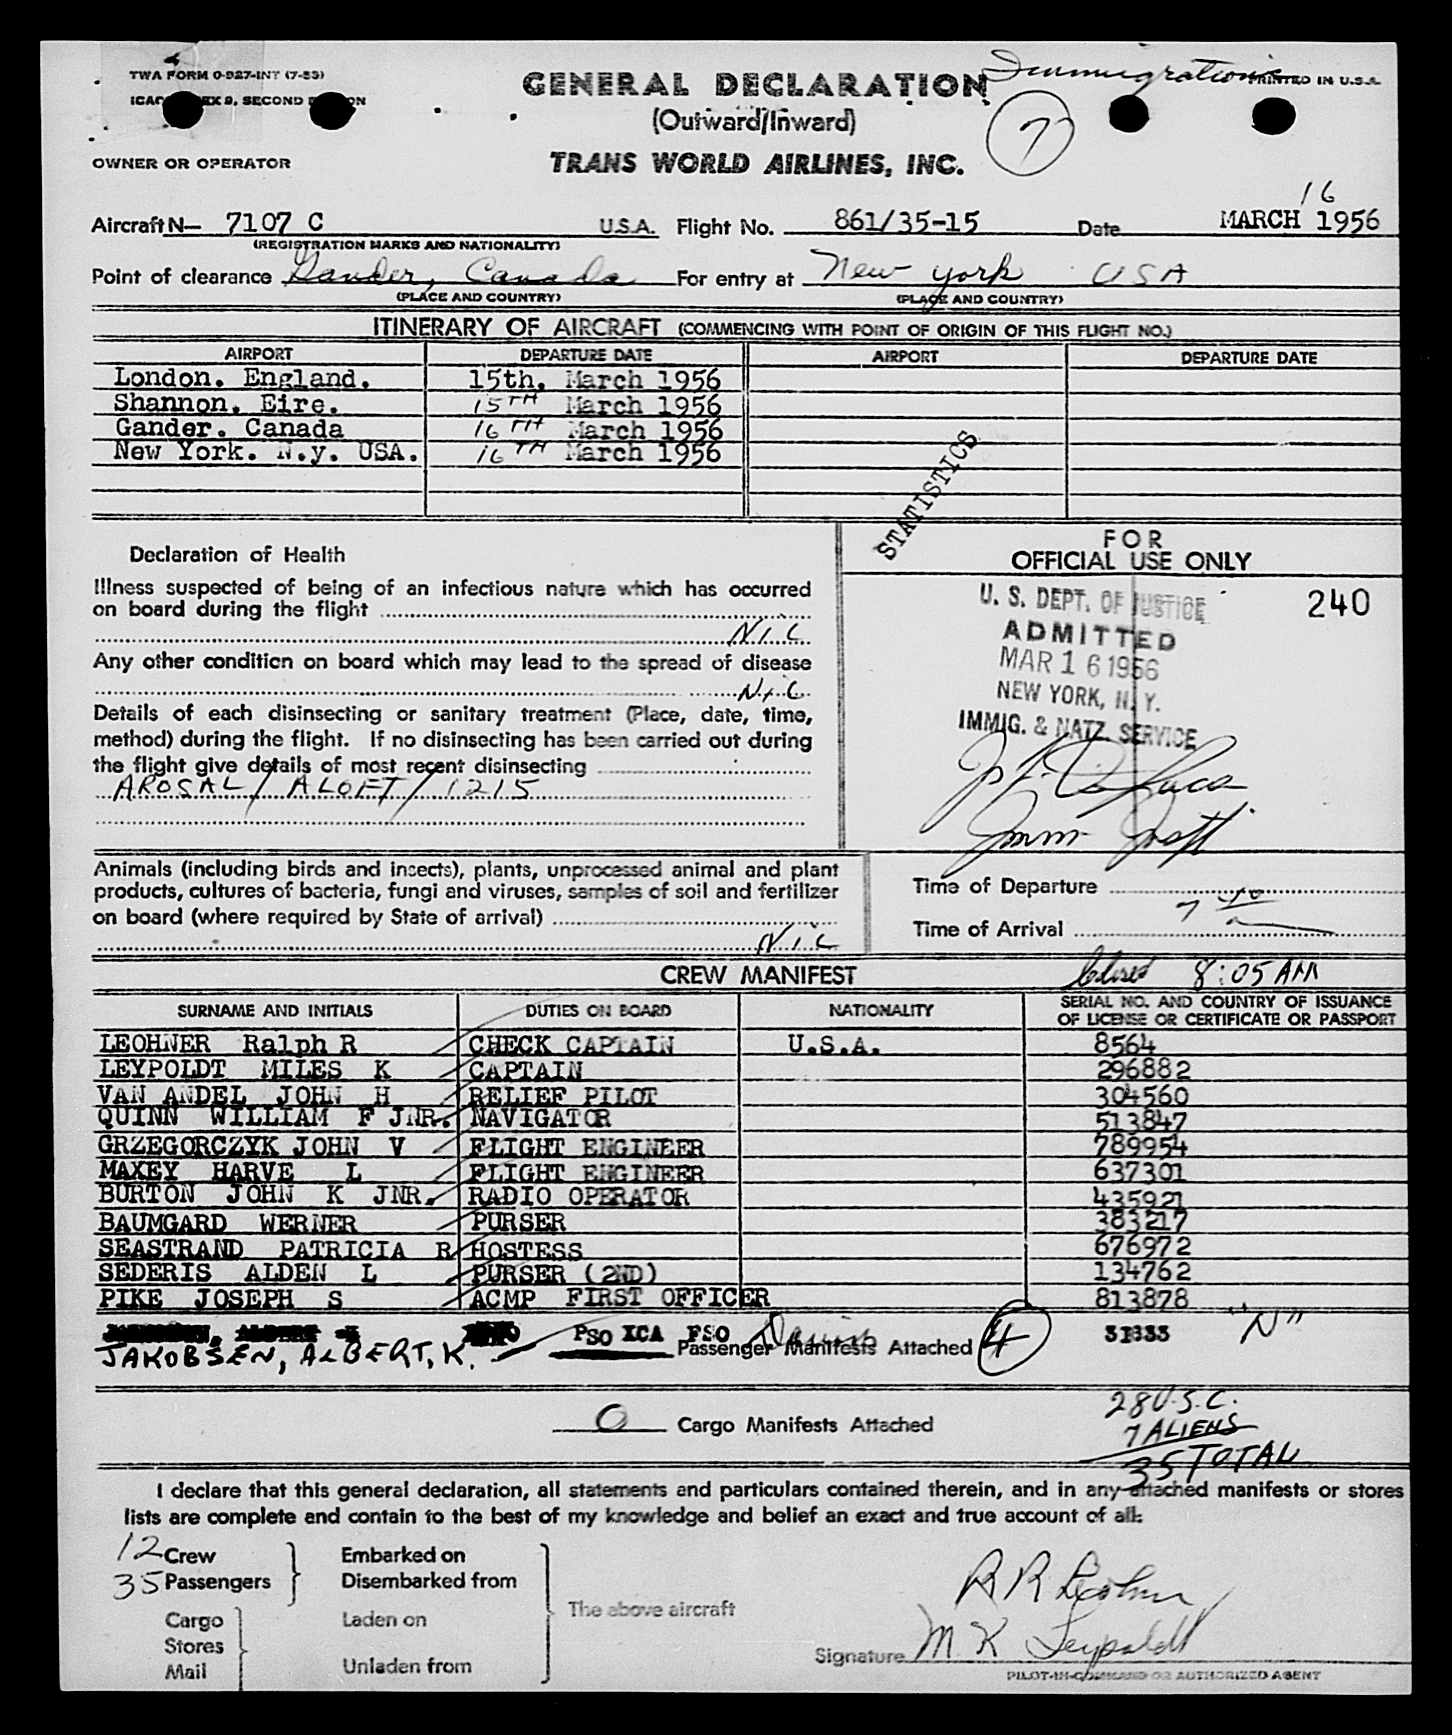 TWA FORM 0-927-INT (7-53)
Immigration
PRINTED IN U.S.A.
GENERAL DECLARATION
(Outward/Inward)
7
OWNER OR OPERATOR
TRANS WORLD AIRLINES, INC.
16
Aircraft N— 7107 C U.S.A. Flight No. 861/35-15 Date MARCH 1956
(REGISTRATION MARKS AND NATIONALITY)
Point of clearance Gander, Canada For entry at New York USA
(PLACE AND COUNTRY) (PLACE AND COUNTRY)
ITINERARY OF AIRCRAFT (COMMENCING WITH POINT OF ORIGIN OF THIS FLIGHT NO.)
AIRPORT DEPARTURE DATE AIRPORT DEPARTURE DATE
London. England. 15th. March 1956
Shannon. Eire. 15TH March 1956
Gander. Canada 16TH March 1956
New York. N.y. USA. 16TH March 1956
STATISTICS
Declaration of Health
Illness suspected of being of an infectious nature which has occurred
on board during the flight
NIL
Any other condition on board which may lead to the spread of disease
NIL
Details of each disinsecting or sanitary treatment (Place, date, time,
method) during the flight. If no disinsecting has been carried out during
the flight give details of most recent disinsecting
AROSAL / ALOFT / 1215
FOR
OFFICIAL USE ONLY
U. S. DEPT. OF JUSTICE
240
ADMITTED
MAR 16 1956
NEW YORK, N. Y.
IMMIG. & NATZ. SERVICE
Imm Insp
Animals (including birds and insects), plants, unprocessed animal and plant
products, cultures of bacteria, fungi and viruses, samples of soil and fertilizer
on board (where required by State of arrival)
NIL
Time of Departure
Time of Arrival 7 40
CREW MANIFEST
Closed 8:05 AM
SURNAME AND INITIALS DUTIES ON BOARD NATIONALITY SERIAL NO. AND COUNTRY OF ISSUANCE
OF LICENSE OR CERTIFICATE OR PASSPORT
LEOHNER Ralph R CHECK CAPTAIN U.S.A. 8564
LEYPOLDT MILES K CAPTAIN 296882
VAN ANDEL JOHN H RELIEF PILOT 304560
QUINN WILLIAM F JNR. NAVIGATOR 513847
GRZEGORCZYK JOHN V FLIGHT ENGINEER 789954
MAXEY HARVE L FLIGHT ENGINEER 637301
BURTON JOHN K JNR. RADIO OPERATOR 435921
BAUMGARD WERNER PURSER 383217
SEASTRAND PATRICIA R HOSTESS 676972
SEDERIS ALDEN L PURSER (2ND) 134762
PIKE JOSEPH S ACMP FIRST OFFICER 813878
PSO XCA FSO Danish 31333 "N"
JAKOBSEN, ALBERT, K. Passenger Manifests Attached 4
0 Cargo Manifests Attached
28 U.S.C.
7 ALIENS
35 TOTAL
I declare that this general declaration, all statements and particulars contained therein, and in any attached manifests or stores
lists are complete and contain to the best of my knowledge and belief an exact and true account of all:
12 Crew
35 Passengers
Embarked on
Disembarked from
Cargo
Stores
Mail
Laden on
Unladen from
The above aircraft
R R Leohner
Signature M K Leypoldt
PILOT-IN-COMMAND OR AUTHORIZED AGENT